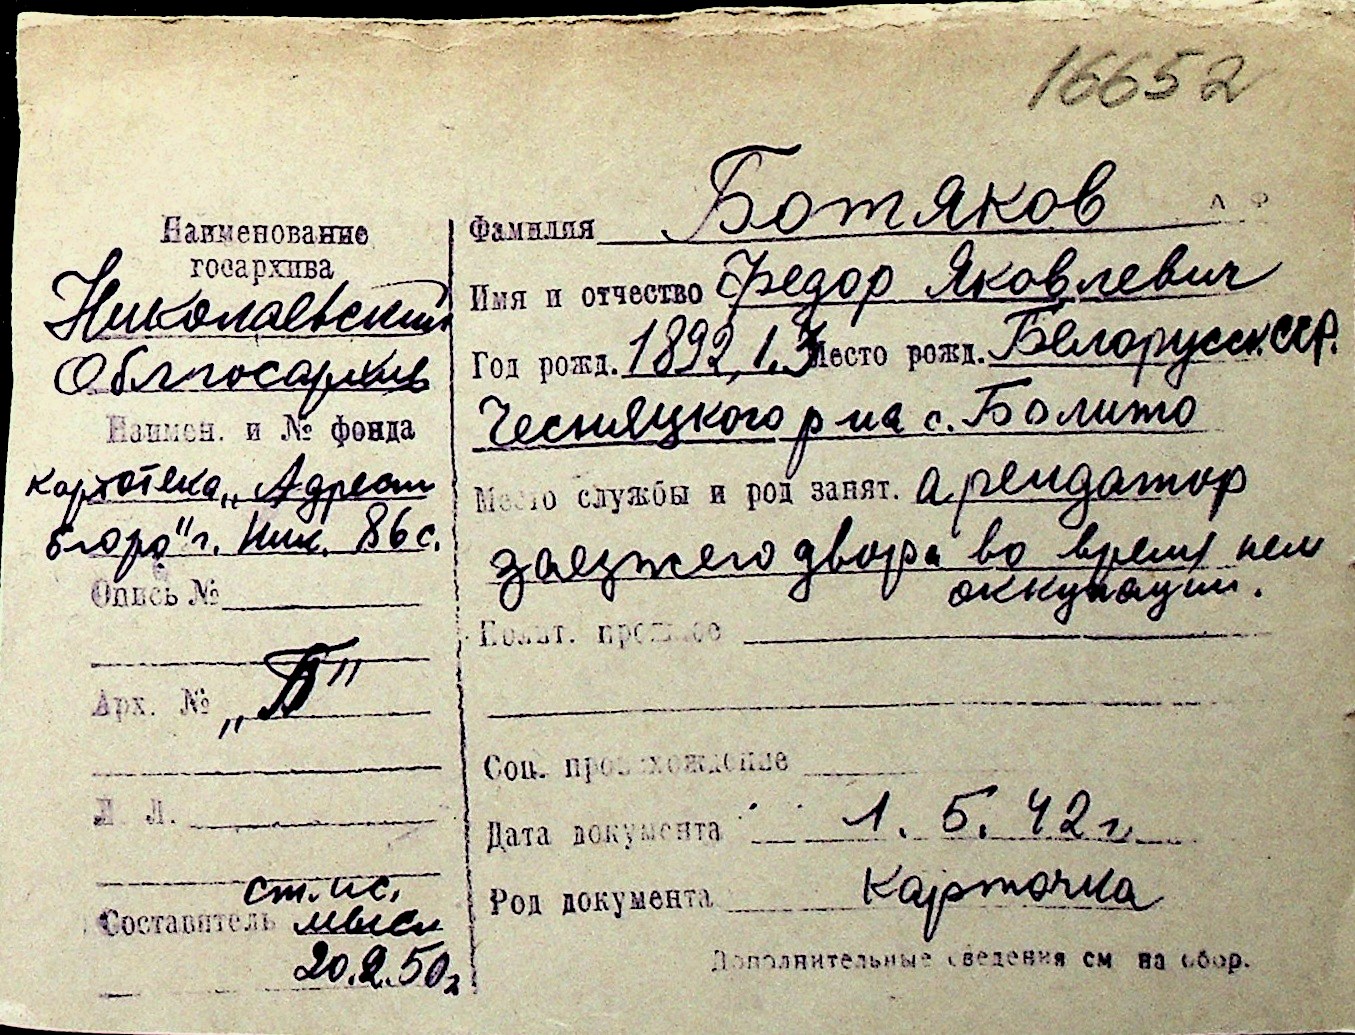 16652
Наименование
госархива
Николаевский
Облгосархив
Наимен. и № фонда
картотека „Адресн
бюро" г. Ник. 86 с.
Опись №
Арх. № „Б"
Л. Л.
ст. ис.
Составитель
20.2.50г
Фамилия Ботяков
Имя и отчество Федор Яковлевич
Год рожд. 1892, 1.3 Место рожд. Белорусск. ССР.
Чесняцкого р-на с. Болито
Место службы и род занят. арендатор
заезжего двора во время нем
оккупации.
Полит. прошлое
Соц. происхождение
Дата документа 1. 5. 42 г
Род документа Карточка
Дополнительные сведения см на обор.